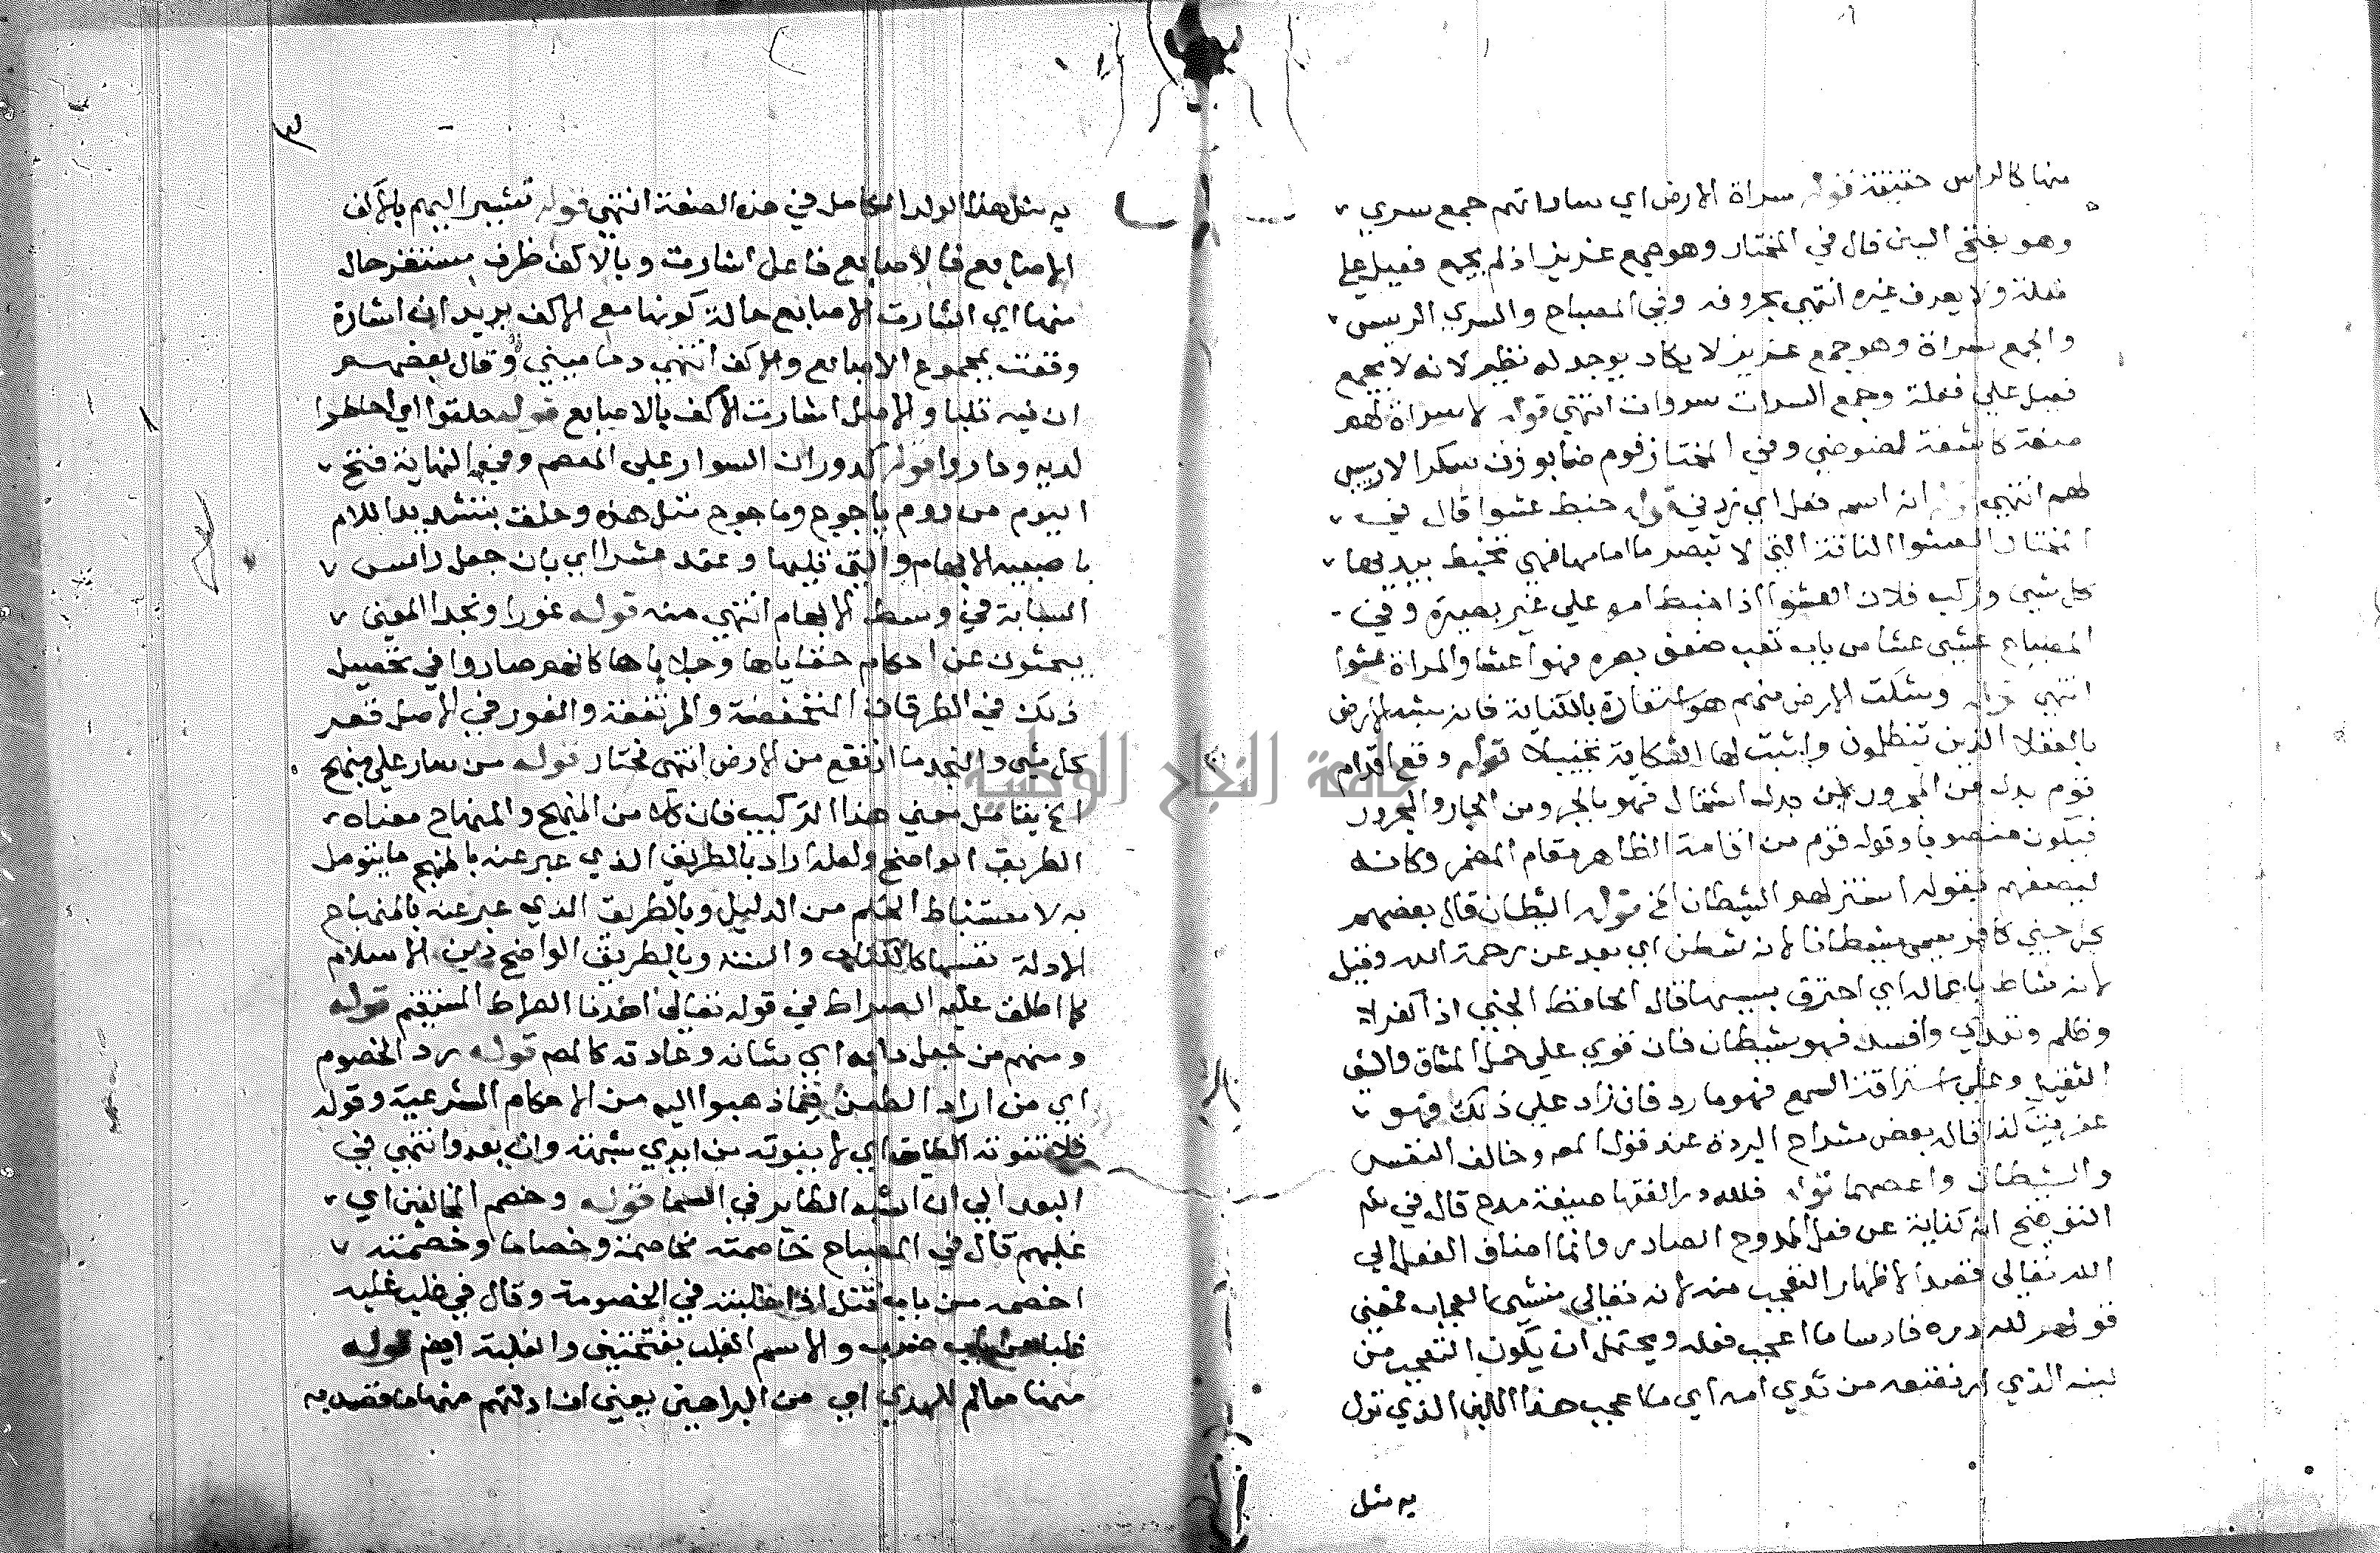 منها كالراس حقيقة قوله سراة الارض اي ساداتهم جمع سري
وهو بفتح السين قال في المختار وهو جمع عزيز اذ لم يجمع فعيل علي
فعلة ولا يعرف غيره انتهي بحروفه وفي المصباح والسري الرييس
والجمع سراة وهو جمع عزيز لا يكاد يوجد له نظير لانه لا يجمع
فعيل علي فعلة وجمع السراة سروات انتهي قوله لا سراة لهم
صفة كاشفة لفوضي وفي المختار قوم فوضي بوزن سكرا لا رييس
لهم انتهي قوله ان اسم فعل اي زد في قوله خبط عشوا قال في
المختار العشوا الناقة التي لا تبصر ما امامها فهي تخبط بيديها
كل شيي وركب فلان العشوا اذا خبط امره علي غير بصيرة وفي
المصباح عشي عشا من باب تعب ضعف بصره فهو اعشا والمراة عشوا
انتهي قوله وشكت الارض منهم هو استعارة بالكناية فانه شبه الارض
بالعقلا الذين يتظلمون واثبت لها الشكاية تخييلا قوله وقع اقدام
قوم بدل من المجرور بمن بدل اشتمال فهو بالجر ومن الجار والمجرور
فيكون منصوبا وقوله قوم من اقامة الظاهر مقام المضمر وكانه
ليصفهم بقوله استزلهم الشيطان الخ قوله الشيطان قال بعضهم
كل جني كافر يسمي شيطانا لانه شطن اي بعد عن رحمة الله وقيل
لانه شاط باعماله اي احترق بسببها قال الحافظ الجني اذا كفر لا
وظلم وتعدي وافسد فهو شيطان فان قوي علي حمل المشاق والشي
الثقيل وعلي استراق السمع فهو مارد فان زاد علي ذلك فهو
عفريت لذا قال بعض شراح البردة عند قول المص وخالف النفس
والشيطان واعصهما قوله فلله در الفقها صيغة مدح قال في
التوضيح انه كناية عن فعل الممدوح الصادر وانما اضاف الفعل الي
الله تعالي قصدا لاظهار التعجب منه لانه تعالي منشي العجاب فمعني
قولهم لله دره فارسا ما اعجب فعله ويحتمل ان يكون التعجب من
لبنه الذي ارتضعه من ثدي امه اي ما اعجب هذا اللبن الذي نزل
به مثل
٣
به مثل هذا الولد الكامل في هذه الصفة انتهي قوله تشير اليهم بالاكف
الاصابع فالاصابع فاعل اشارت وبالاكف ظرف مستقر حال
منها اي اشارت الاصابع حالة كونها مع الاكف يريد ان اشارة
وقعت بمجموع الاصابع والاكف انتهي دماميني وقال بعضهم
ان فيه قلبا والاصل اشارت الاكف بالاصابع قوله حلقوا اي احاطوا
لديه وداروا قوله كدوران السوار علي المعصم وفي النهاية فتح
اليوم من ردم ياجوج وماجوج مثل هذه وحلق بتشديد اللام
باصبعيه الابهام والتي تليها وعقد عشرا اي بان جعل راس
السبابة في وسط الابهام انتهي منه قوله غورا ونجدا المعني
يبحثون عن احكام خفاياها وجلاياها كانهم صاروا في تحصيل
ذلك في الطرقات المنخفضة والمرتفعة والغور في الاصل قعر
كل شيي والنجد ما ارتفع من الارض انتهي مختار قوله من سار علي منهج
الخ يتامل معني هذا التركيب فان كلا من المنهج والمنهاج معناه
الطريق الواضح ولعله اراد بالطريق الذي عبر عنه بالمنهج ما يتوصل
به لاستنباط الحكم من الدليل وبالطريق الذي عبر عنه بالمنهاج
الادلة نفسها كالكتاب والسنة وبالطريق الواضح دين الاسلام
كما اطلق عليه الصراط في قوله تعالي اهدنا الصراط المستقيم قوله
ومنهم من جعل دابه اي شانه وعادته كالمص قوله رد الخصوم
اي من اراد الطعن فيما ذهبوا اليه من الاحكام الشرعية وقوله
فلا تفوته الطيات اي لا يفوته من ابدي شبهة وان بعد وانتهي في
البعد الي ان اشبه الطاير في السما قوله وخصم المخالفين اي
غلبهم قال في المصباح خاصمته مخاصمة وخصاما وخصمته
اخصمه من باب قتل اذا غلبته في الخصومة وقال في غلب غلبه
غلبا من باب ضرب والاسم الغلب بفتحتين والغلبة ايضا قوله
منها معالم للهدي اي من البراهين يعني ان ادلتهم منها ما قصد به
جامعة النجاح الوطنية